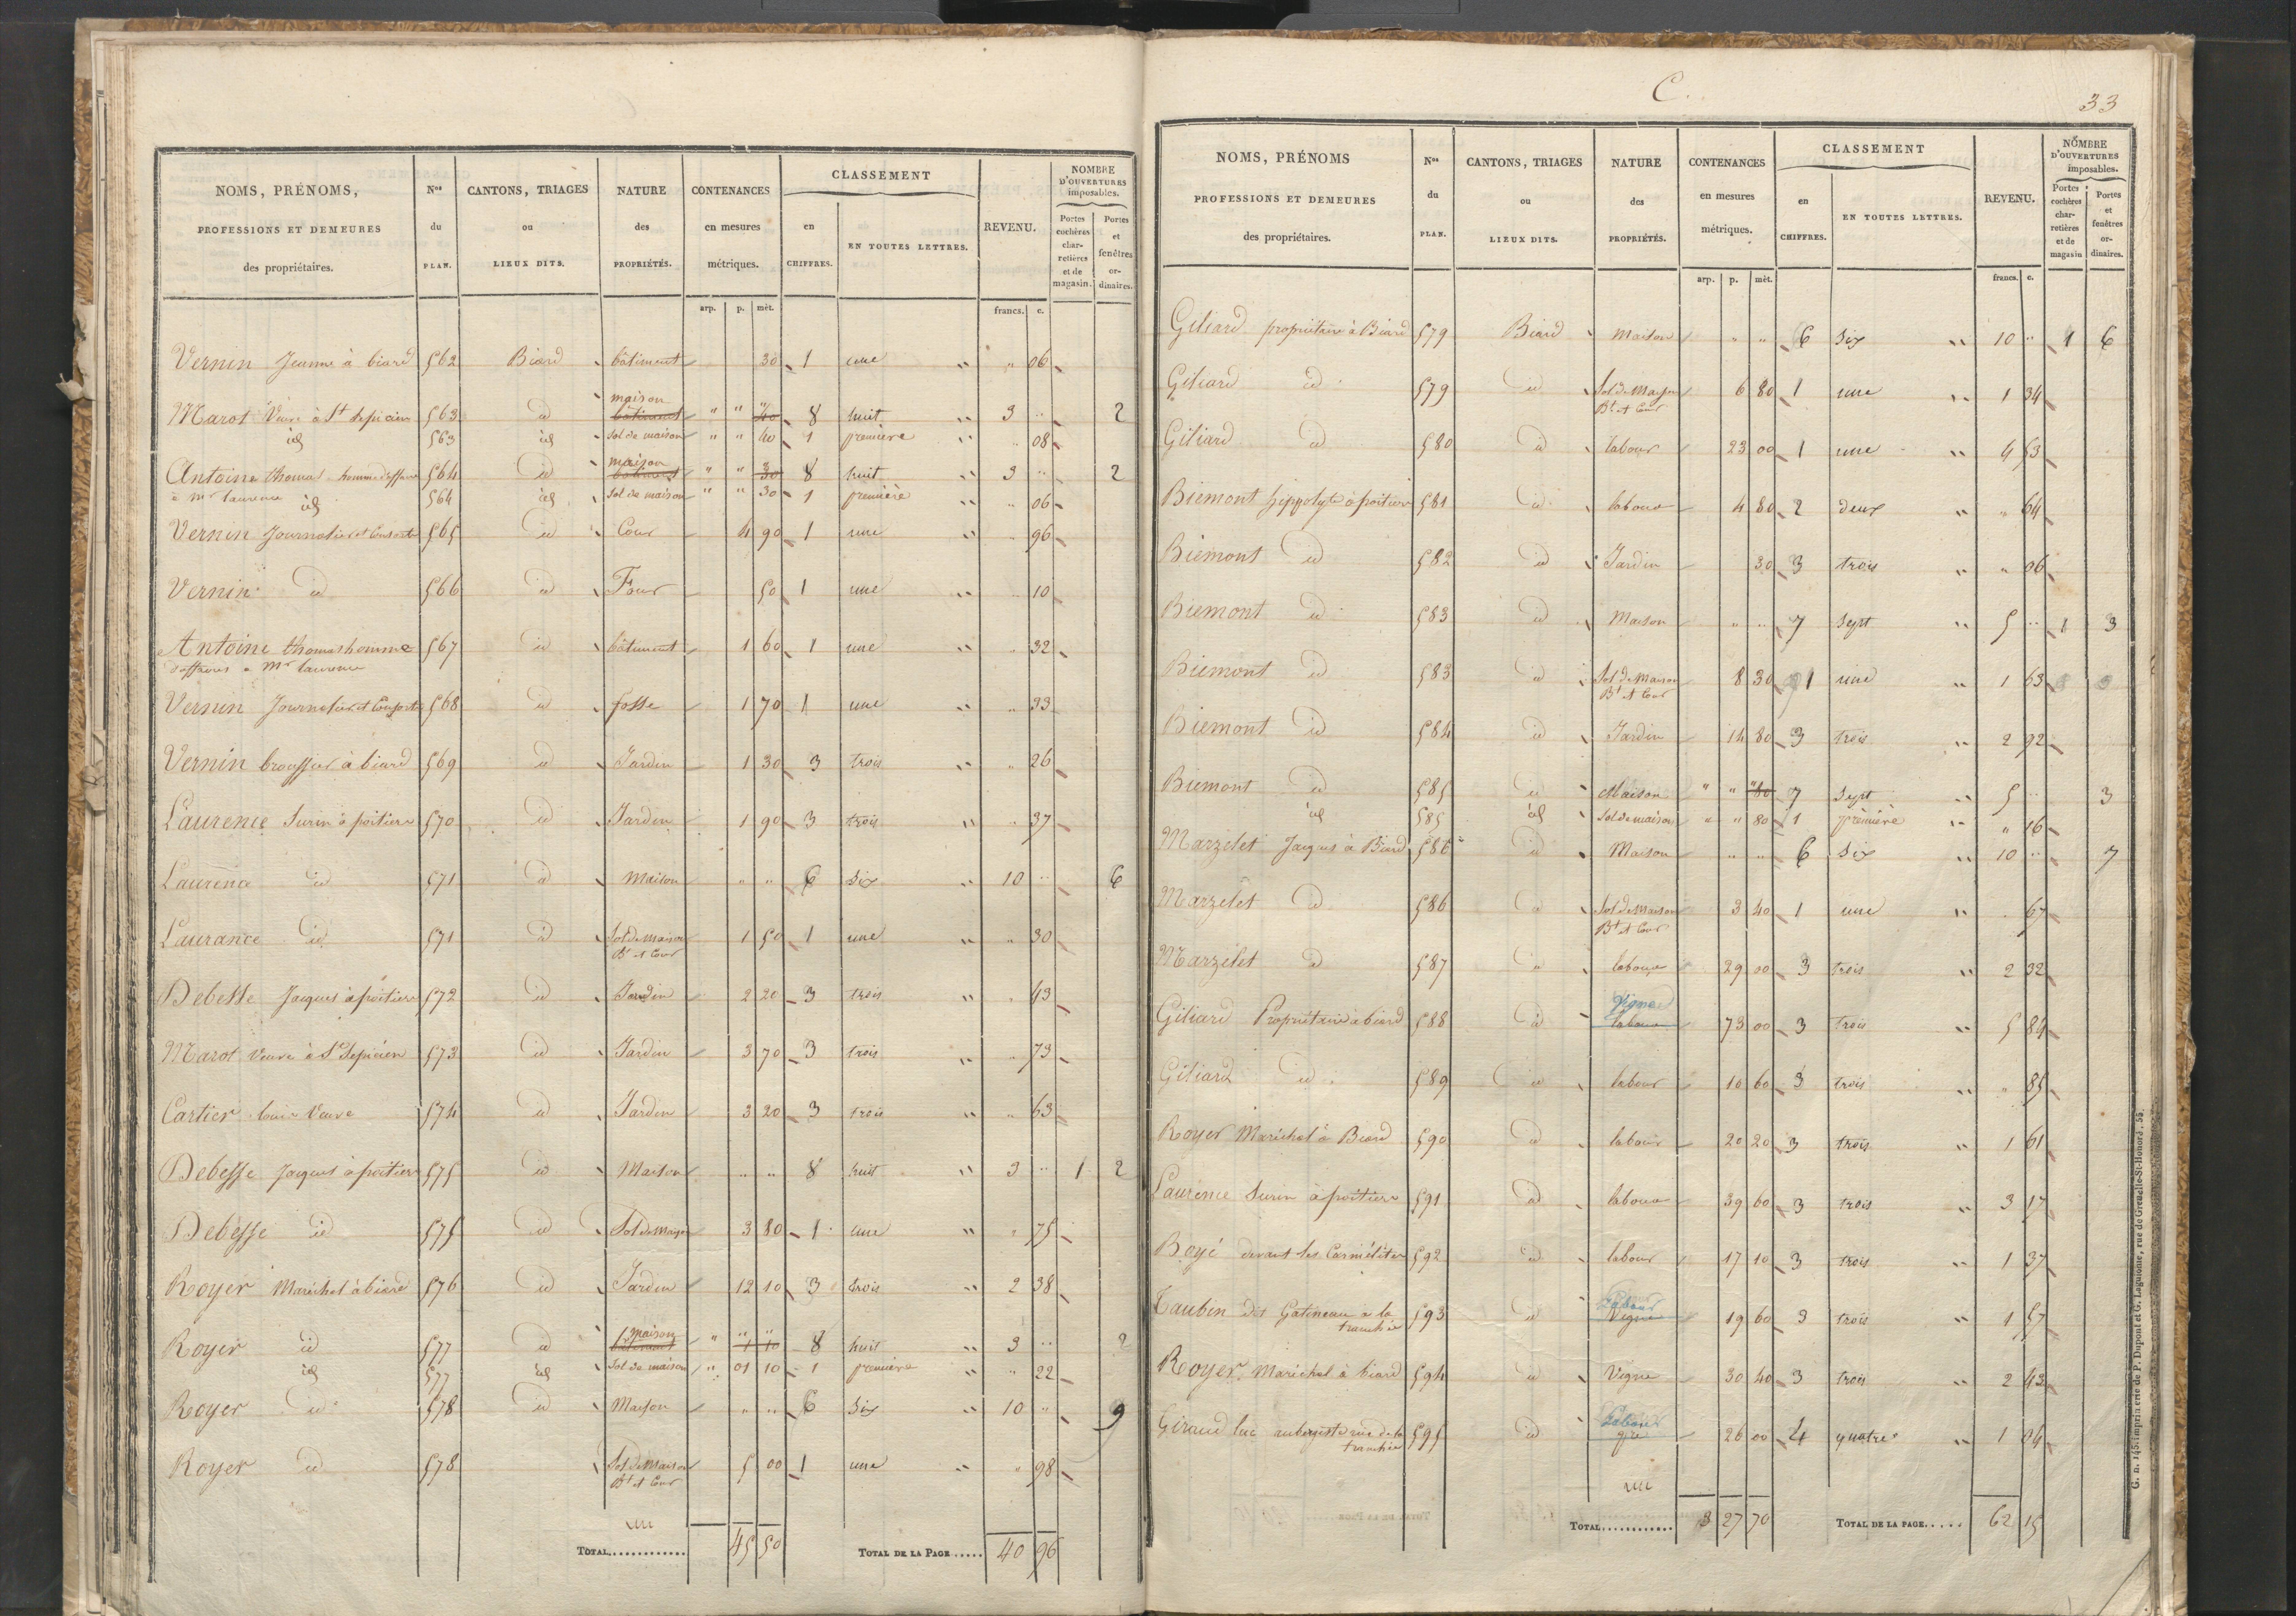 NOMS, PRÉNOMS, PROFESSIONS ET DEMEURES des propriétaires. | Nos du PLAN. | CANTONS, TRIAGES ou LIEUX DITS. | NATURE des PROPRIÉTÉS. | CONTENANCES en mesures métriques. | CLASSEMENT en CHIFFRES. | EN TOUTES LETTRES. | REVENU. | NOMBRE D'OUVERTURES imposables. Portes cochères charretières et de magasin. | Portes et fenêtres ordinaires.
arp. p. mèt. francs. c.
Vernin Jeanne à biard 562 Biard bâtiment 30 1 une " " 06
Marot Veuve à St 563 id maison bâtiment " " 40 8 huit " 3 " 2
id 563 id Sol de maison " " 40 1 première " " 08
Antoine thomas homme d'affaires 564 id maison bâtiment " " 30 8 huit " 3 " 2
à mr laurence id 564 id Sol de maison " " 30 1 première " " 06
Vernin Journalier et Consorts 565 id Cour 4 90 1 une " " 96
Vernin id 566 id Four 50 1 une " " 10
Antoine thomas homme 567 id bâtiment 1 60 1 une " " 32
d'affaires a Mr laurence
Vernin Journalier et Consorts 568 id fosse 1 70 1 une " " 33
Vernin à biard 569 id Jardin 1 30 3 trois " " 26
Laurence Surin à poitiers 570 id Jardin 1 90 3 trois " " 37
Laurence id 571 id Maison " " 6 six " 10 " 6
Laurance id 571 id Sol de Maison 1 50 1 une " " 30
Bt et Cour
Debesse Jacques à poitiers 572 id Jardin 2 20 3 trois " " 43
Marot Veuve à St 573 id Jardin 3 70 3 trois " " 73
Cartier louis Veuve 574 id Jardin 3 20 3 trois " " 63
Debesse Jacques à poitiers 575 id Maison " " 8 huit " 3 " 1 2
Debesse id 575 id Sol de Maison 3 80 1 une " " 75
Royer Maréchal à biard 576 id Jardin 12 10 3 trois " 2 38
Royer id 577 id maison bâtiment " 1 10 8 huit " 3 " 2
id 577 id Sol de maison " 01 10 1 première " " 22
Royer id 578 id Maison " " 6 six " 10 " 9
Royer id 578 Sol de Maison 5 00 1 une " " 98
Bt et Cour
TOTAL 45 50 TOTAL DE LA PAGE 40 96
C.
33
NOMS, PRÉNOMS PROFESSIONS ET DEMEURES des propriétaires. | Nos du PLAN. | CANTONS, TRIAGES ou LIEUX DITS. | NATURE des PROPRIÉTÉS. | CONTENANCES en mesures métriques. | CLASSEMENT en CHIFFRES. | EN TOUTES LETTRES. | REVENU. | NOMBRE D'OUVERTURES imposables. Portes cochères charretières et de magasin | Portes et fenêtres ordinaires.
arp. p. mèt. francs. c.
Giliard propriétaire à Biard 579 Biard Maison " " 6 six " 10 " 1 6
Giliard id 579 id Sol de Maison 6 80 1 une " 1 34
Bt et Cour
Giliard id 580 id labour 23 00 1 une " 4 53
Biemont hippolyte à poitiers 581 id labour 4 80 2 deux " " 64
Biemont id 582 id Jardin 30 3 trois " " 06
Biemont id 583 id Maison " " 7 sept " 5 " 1 3
Biemont id 583 id Sol de Maison 8 30 1 une " 1 63
Bt et Cour
Biemont id 584 id Jardin 14 80 3 trois " 2 92
Biemont id 585 id Maison " " 80 7 sept " 5 " 3
id 585 id Sol de maison " " 80 1 première " " 16
Marzelet Jacques à Biard 586 id Maison " " 6 six " 10 " 7
Marzelet id 586 id Sol de Maison 3 40 1 une " " 67
Bt et Cour
Marzelet id 587 id labour 29 00 3 trois " 2 32
Giliard Propriétaire à biard 588 id Vigne labour 73 00 3 trois " 5 84
Giliard id 589 id labour 10 60 3 trois " " 85
Royer Maréchal à Biard 590 id labour 20 20 3 trois " 1 61
Laurence Surin à poitiers 591 id labour 39 60 3 trois " 3 17
Boyé devant les Carmélites 592 id labour 17 10 3 trois " 1 37
Taubin dit Gatineau à la 593 id Labour Vigne 19 60 3 trois " 1 57
tranchée
Royer Maréchal à biard 594 id Vigne 30 40 3 trois " 2 43
Giraud luc aubergiste rue de la 595 id Labour 26 00 4 quatre " 1 04
tranchée
TOTAL 3 27 70 TOTAL DE LA PAGE 62 15
G. n. 145. imprimerie de P. Dupont et G. Laguionie, rue de Grenelle-St-Honoré, 55.